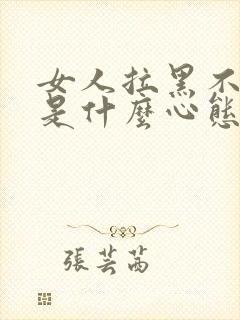 女人拉黑不
是什麼心態
張芸茜